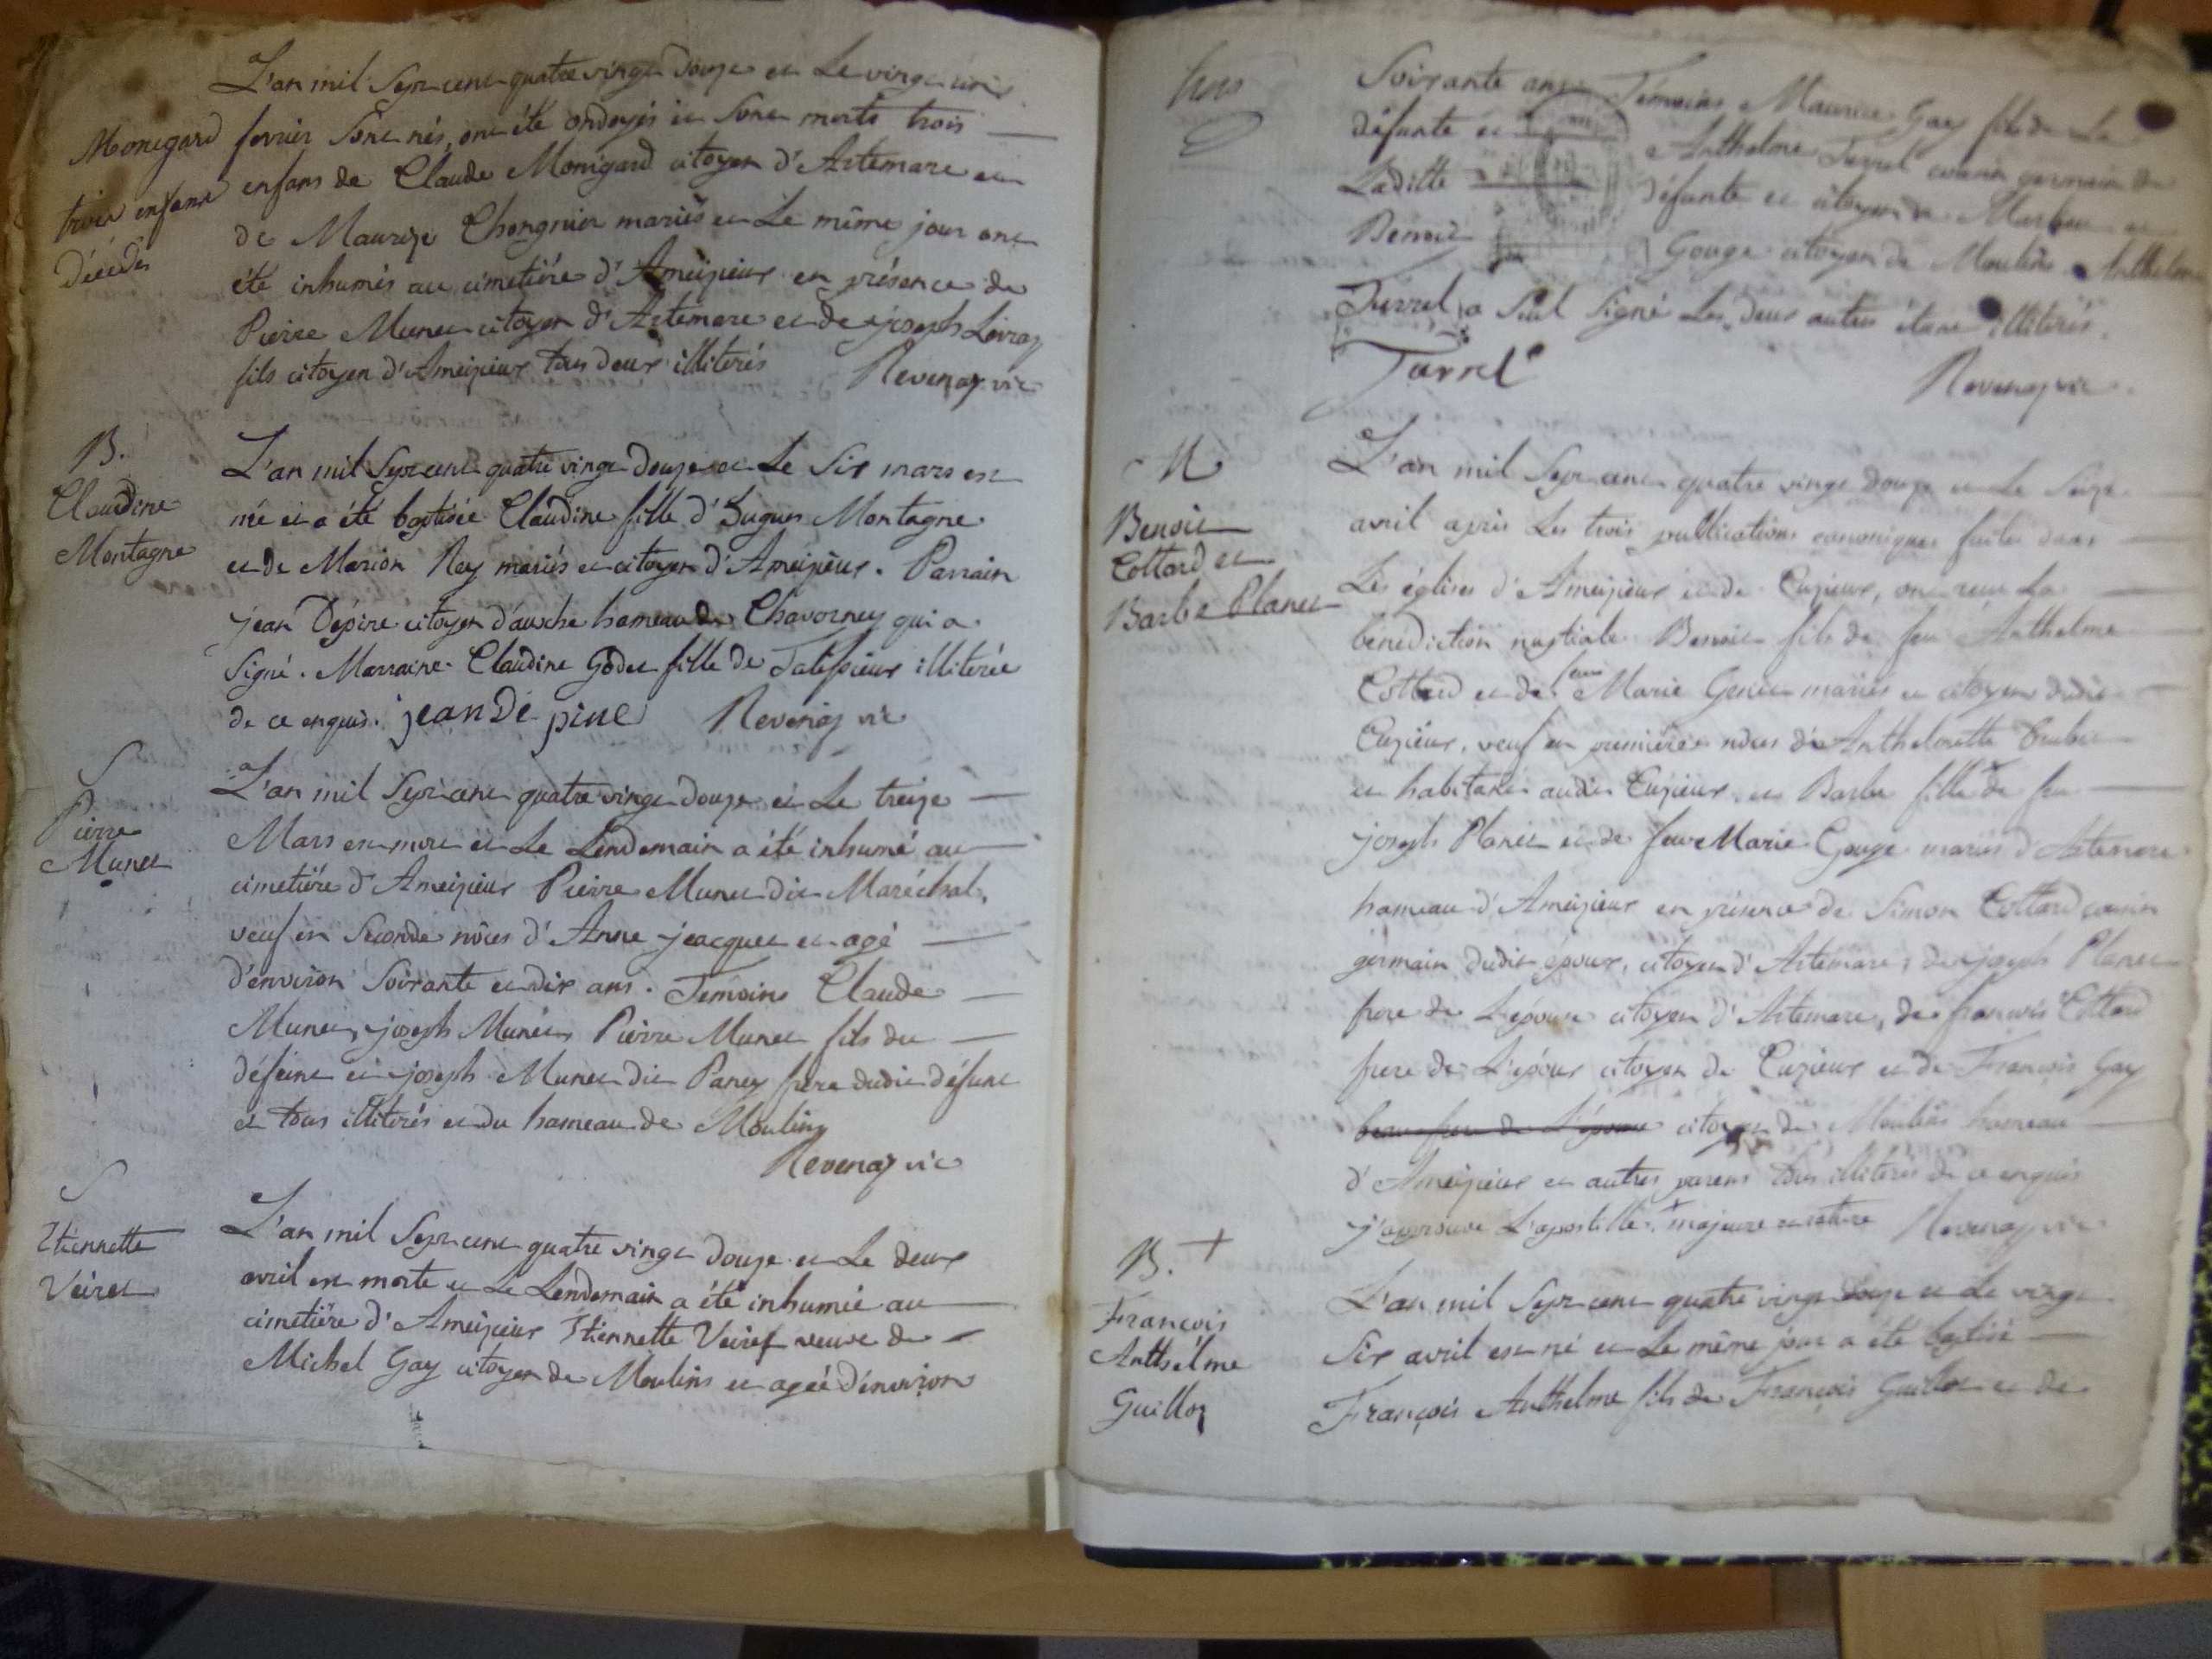 L'an mil Sept cent quatre vingt douze et Le vingt trois
Monigard
trois enfans
décédés
fevrier Sont nés, ont été ondoyés et Sont morts trois
enfans de Claude Monigard citoyen d'Artemare et
de Maurize Chongnier mariés et Le même jour ont
été inhumés au cimetiére d'Ameizieux en présence de
Pierre Munet citoyen d'Artemare et de joseph Livraz
fils citoyen d'Ameizieux tous deux illiterés Revenaz vic
B.
Claudine
Montagne
L'an mil Sept cent quatre vingt douze et Le Six mars est
née et a été baptisée Claudine fille d'hugues Montagne
et de Marion Rey mariés et citoyen d'Ameizieux. Parrain
jean Dépine citoyen d'ausche hameau de Chavorney qui a
Signé. Marraine Claudine Godet fille de Talissieux illiterée
de ce enquis. jean De pine Revenaz vic
S
Pierre
Munet
L'an mil Sept cent quatre vingt douze et Le treize
Mars est mort et Le Lendemain a été inhumé au
cimetiére d'Ameizieux Pierre Munet dit Maréchal,
veuf en Seconde nôces d'Anne jacquet et agé
d'environ Soixante et dix ans. Témoins Claude
Munet, joseph Munet, Pierre Munet fils du
défunt et joseph Munet dit Parey frere dudit défunt
et tous illiterés et du hameau de Moulins
Revenaz vic
S
Etiennette
Veiret
L'an mil Sept cent quatre vingt douze et Le deux
avril est morte et Le Lendemain a été inhumée au
cimetiére d'Ameizieux Etiennette Veiret veuve de
Michel Gay citoyen de Moulins et agée d'environ
trois
Soixante ans Témoins Maurice Gay fils de La
défunte et Anthelme Turrel cousin germain de
Laditte défunte et citoyen de et
Benoit Gouge citoyen de Moulins Anthelme
Turrel a Seul Signé Les deux autres étant illiterés.
Turrel Revenaz vic
M
Benoit
Cottard et
Barbe Planet
L'an mil Sept cent quatre vingt douze et Le Seize
avril après Les trois publications canoniques faites dans
Les églises d'Ameizieux et de Cuzieux, ont reçu La
benediction nuptiale Benoit fils de feu Anthelme
Cottard et de feue Marie Genet mariés et citoyen dudit
Cuzieux, veuf en premiéres nôces d'Anthelmette
et habitant audit Cuzieux, et Barbe fille + de feu
joseph Planet et de feue Marie Gouge mariés d'Artemare
hameau d'Ameizieux en présence de Simon Cottard cousin
germain dudit époux, citoyen d'Artemare, de joseph Planet
frere de L'épouse citoyen d'Artemare, de françois Cottard
frere de L'époux citoyen de Cuzieux et de François Gay
beau frere de L'épouse citoyen de Moulins hameau
d'Ameizieux et autres parens tous illiterés de ce enquis
j'approuve L'apostille. + majeure Revenaz vic
B. +
François
Anthélme
Guilloz
L'an mil Sept cent quatre vingt douze et Le vingt
Six avril est né et Le même jour a été baptisé
François Anthelme fils de François Guillot et de